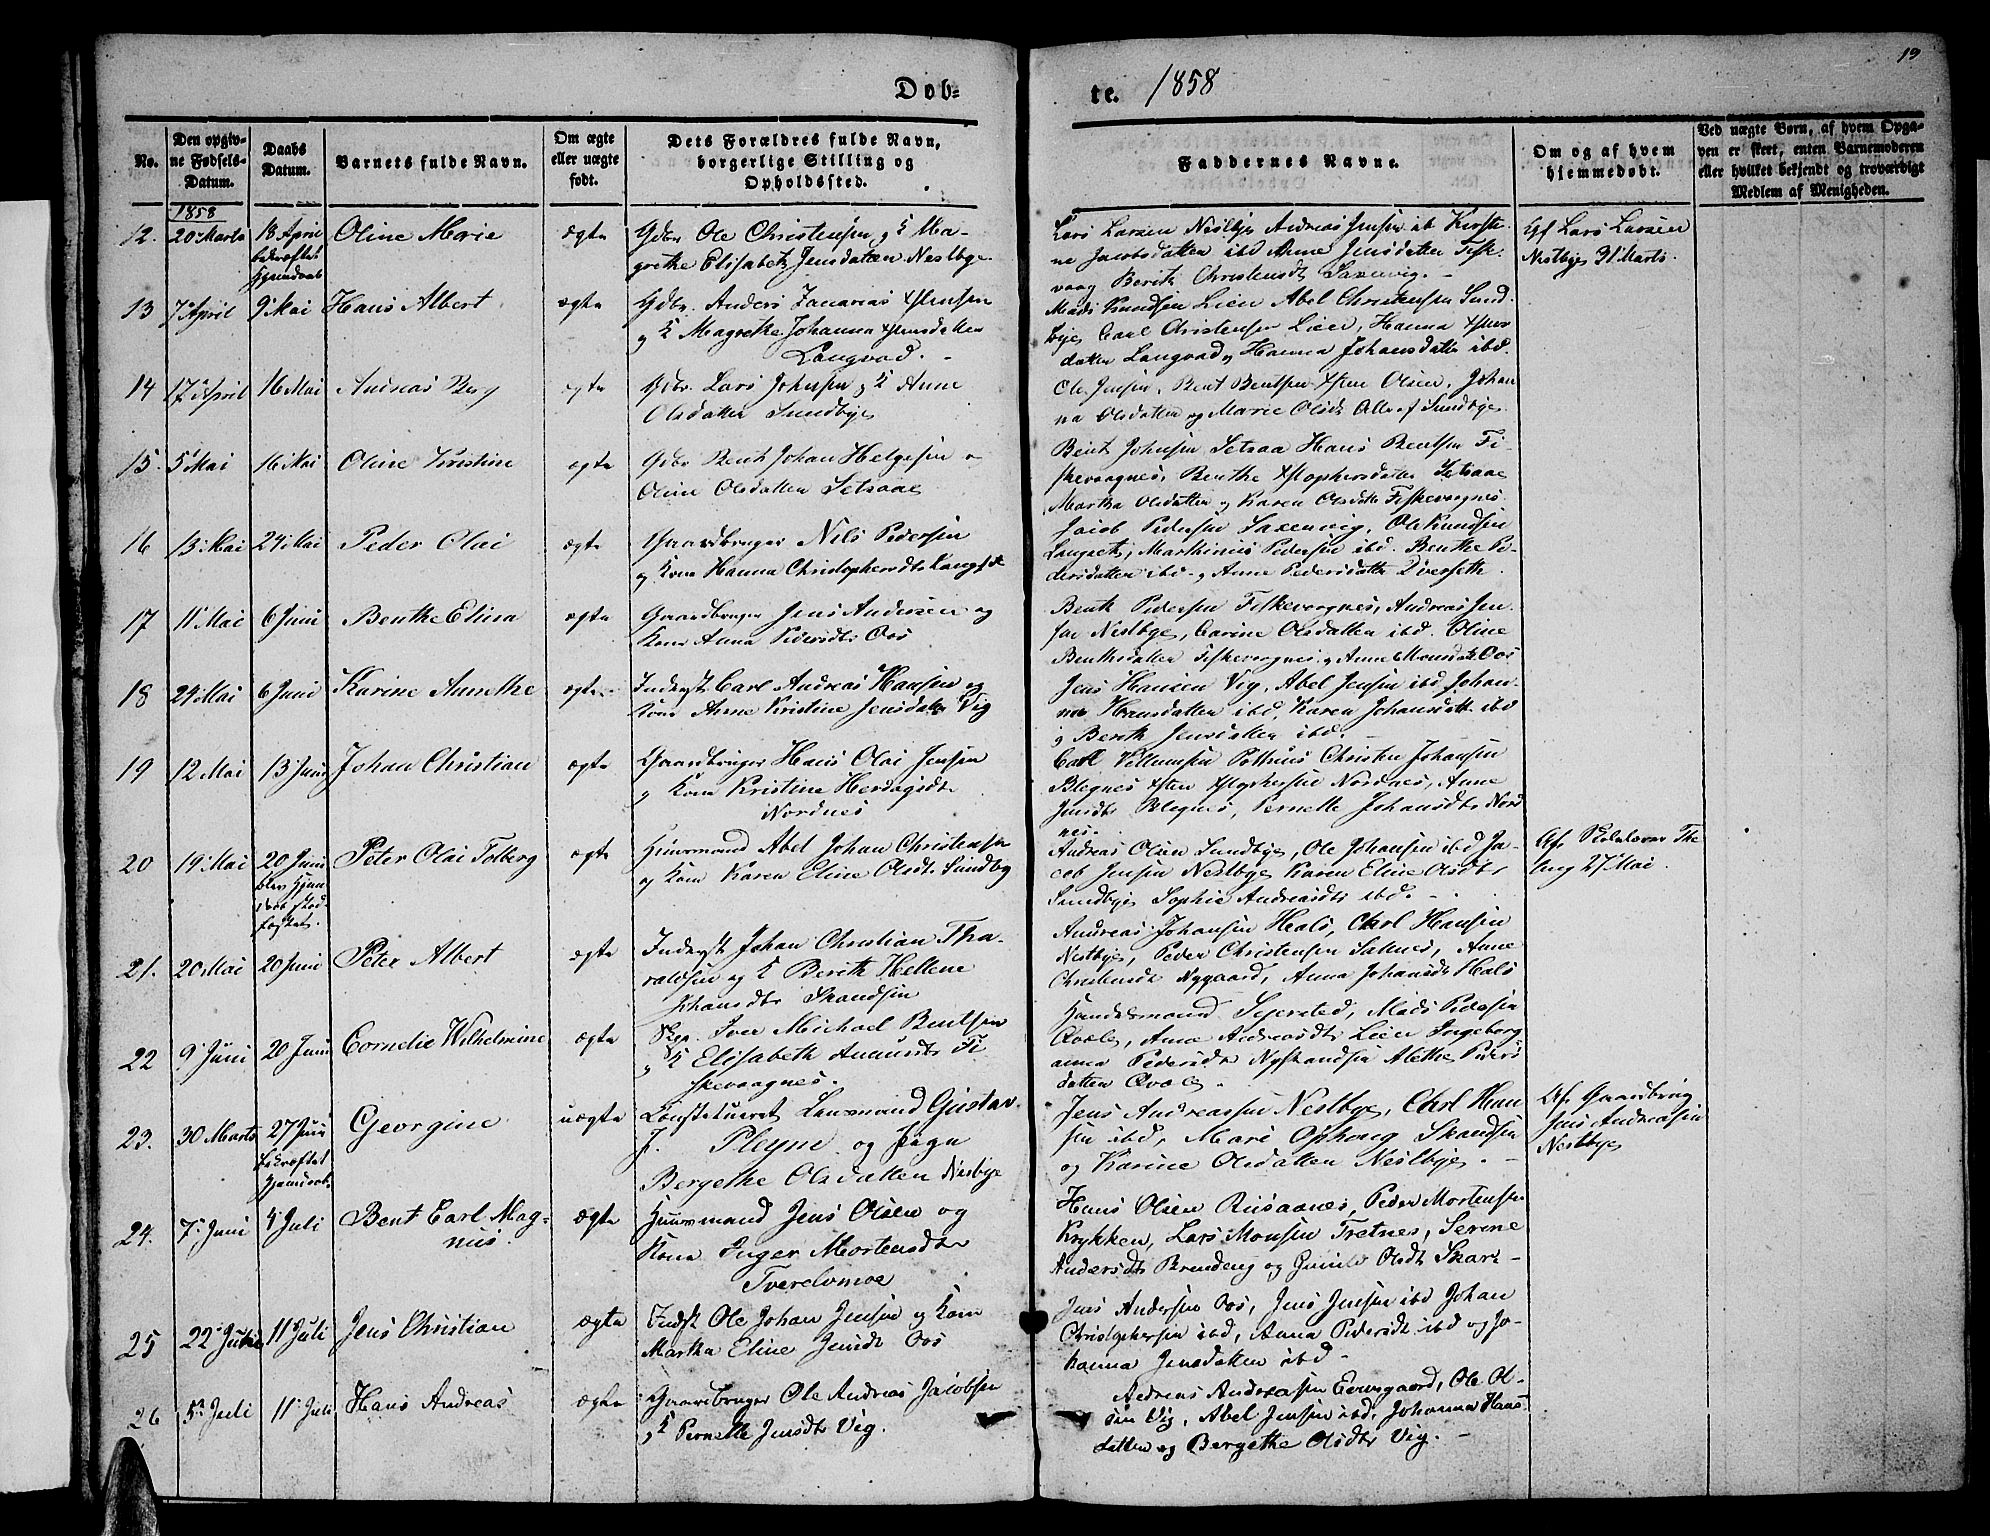 19
Døb=
te. 1858
No.
Den opgiv-
ne Fødsels-
Datum.
Daabs
Datum.
Barnets fulde Navn.
Om ægte
eller uægte
født.
Dets Forældres fulde Navn,
borgerlige Stilling og
Opholdssted.
Faddernes Navne.
Om og af hvem
hjemmedøbt.
Ved uægte Børn, af hvem Opga-
ven er skeet, enten Barnemoderen
eller hvilket bekjendt og troværdigt
Medlem af Menigheden.
1858
12. 20 Marts 18 April Oline Marie ægte Gdbr Ole Christensen og K Ma-
bekræftet
Hjemdaab
grethe Elisabeth Jensdatter Nestbye
Lars Larsen Nestbye Andreas Jensen ib Kirsti-
ne Jacobsdatter ibd Anne Jensdatter Fisk-
vaag Berith Christensdt Saxenvig.
Af Lars Larsen
Nestbye 31 Marts.
13 7 April 9 Mai Hans Albert ægte Gdbr. Anders Zacarias Xstensen
og K Magrethe Johanna Xstensdatter
Langvad.
Mads Knudsen Lien Abel Christensen Sund-
bye Carl Christensen Lien, Hanna Xstens
datter Langvad og Hanna Johansdatter ibd.
14 17 April 16 Mai Andreas Berg ægte Gdbr Lars Johnsen og K Anne
Olsdatter Sundbye
Ole Jensen, Bent Bentsen Xsten Olsen, Johan
na Olsdatter og Marie Olsdt Alle af Sundbye
15. 5 Mai 16 Mai Oline Kristine ægte Gdbr Bent Johan Helgesen o
Oline Olsdatter Setsaae
Bent Johnsen Setsaa Hans Bentsen Fi-
skevaagnes, Benthe Xstophersdatter Setsaae
Martha Olsdatter og Karen Olsdtt Fiskevaagnes
16 13 Mai 24 Mai Peder Olai ægte Gaardbruger Nils Pedersen
og Kone Hanna Christophersdtr Langset
Jacob Pedersen Saxenvig, Ole Knudsen
Langset, Marthinus Pedersen ibd. Benthe Pe-
dersdatter ibd og Anne Pedersdatter Dverseth.
17 11 Mai 6 Juni Benthe Elina ægte Gaardbruger Jens Andersen og
Kone Anna Pedersdtr Oos
Bent Pedersen Fiskevaagnes, Andreas Jen
sen Nestbye, Carine Olsdatter ibd. Oline
Benthsdatter Fiskevaagnes og Anne Monsdtr Oos
18 24 Mai 6 Juni Karine Anrethe ægte Inderst Carl Andreas Hansen og
Kone Anne Kristine Jensdatter Vig
Jens Hansen Vig, Abel Jensen ibd Johan-
na Hansdatter ibd, Karen Johansdatt. ibd
og Berith Jensdatter ibd.
19 12 Mai 13 Juni Johan Christian ægte Gaardbruger Hans Olai Jensen
og Kone Kristine Herdagsdtr
Nordnes
Carl Villumsen Pothus Christen Johansen
Blegnes Xsten Xstophersen Nordnes, Anne
Jensdtr Blegnes, Pernelle Johansdtr Nord
nes.
20 19 Mai 20 Juni Peter Olai Tolberg ægte Huusmand Abel Johan Christensen
og Kone Karen Eline Olsdtr Sundby
Andreas Olsen Sundbye, Ole Johansen ibd Ja-
cob Jensen Nestbye Karen Eline Olsdtr
Sundbye Sophie Andreasdtr ibd.
27 Mai
21. 20 Mai 20 Juni Peter Albert ægte Inderst Johan Christian Tha-
raldsen og K Berith Hellene
Johansdtr Skandsen
Andreas Johansen Hals, Carl Hansen
Nestbye, Peder Christensen Saltnes, Anne
Christensdtr Nygaard, Anna Johansdtr Hals
22 9 Juni 20 Juni Cornelie Wilhelmine ægte Iver Michael Bentsen
og K Elisabeth Amundsdtr Fi
skevaagnes.
Handelsmand Sejersted, Mads Pedersen
Qvale, Anne Andreasdtr Lien Ingeborg
anna Pedersdtr Nyskandsen Alethe Peders
datter Qvale.
23. 30 Marts 27 Juni Georgine uægte Constitueret Lensmand Gustav
bekræftet
Hjemdaab.
F. Pleym og Pigen
Bergethe Olsdatter Nestbye
Jens Andreassen Nestbye, Carl Han
sen ibd, Mari Ophoug Skandsen
og Karine Olsdatter Nestbye.
Af Gaardbrug
Jens Andreasen
Nestbye
24. 7 Juni 4 Juli Bent Carl Mag-
nus
ægte Huusmand Jens Olsen og
Kone Inger Mortensdtr
Tverelvmoe
Hans Olsen Rusaanes, Peder Mortensen
Krykken, Lars Monsen Tretnes, Serine
Andersdtr Brendeng og Gunild Olsdt Skar
25 22 11 Juli Jens Christian ægte Indst Ole Johan Jensen og Kone
Martha Eline Jensdt Oos
Jens Andersen Oos, Jens Jensen ibd Johan
Christophersen ibd, Anna Pedersdt ibd og Jo-
hanna Jensdatter ibd
26 5 Juli 11 Juli Hans Andreas ægte Gaardbruger Ole Andreas Jacobsen
og K Pernelle Jensdtr Vig.
Andreas Andreasen Evensgaard, Ole Ol-
sen Vig, Abel Jensen ibd, Johanna Hans
datter og Bergethe Olsdtr Vig.